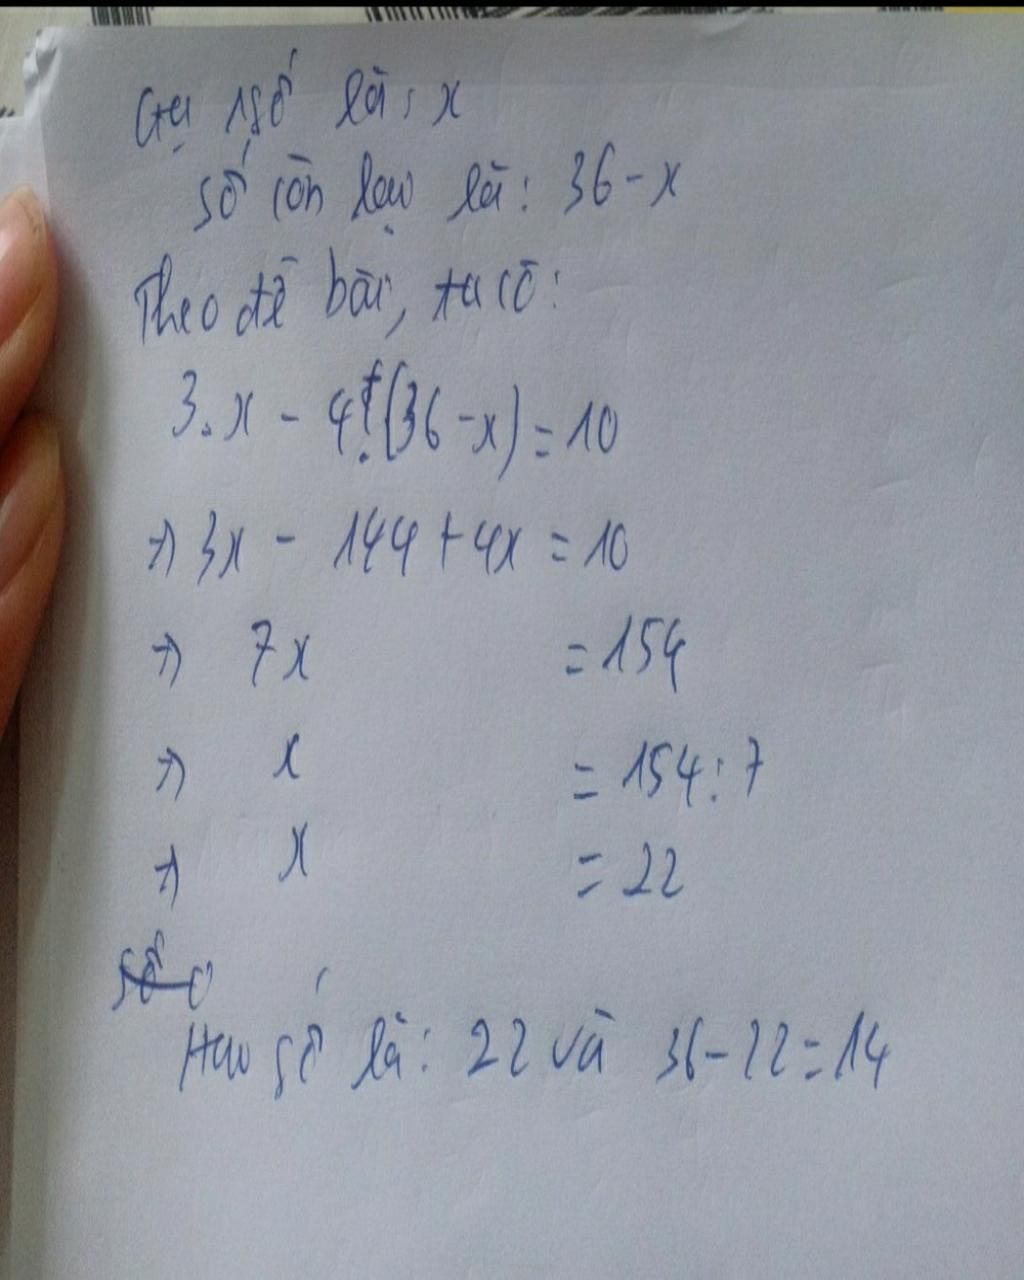 Gọi 1 số là: x
số còn lại là: 36 - x
Theo đề bài, ta có:
3.x - 4.(36 - x) = 10
⇒ 3x - 144 + 4x = 10
⇒ 7x = 154
⇒ x = 154 : 7
⇒ x = 22
Hai số là: 22 và 36 - 22 = 14